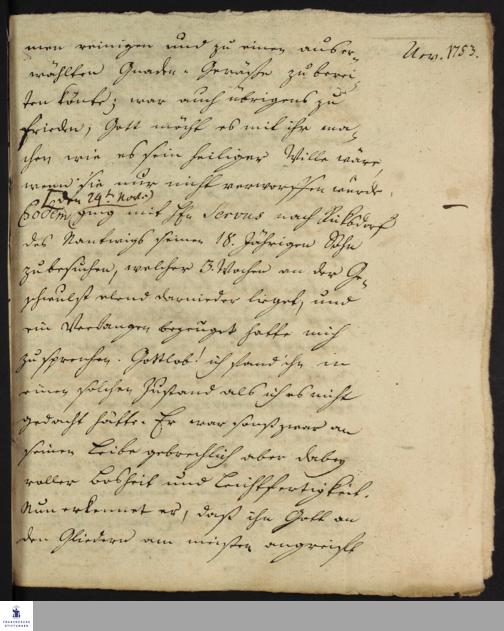 Nov. 1753.
men reinigen und zu einen auser-
wählten Gnaden-Gefäße zu berei-
ten könte; war auch übrigens zu
frieden, Gott möcht es mit ihr ma-
chen wie es sein heiliger Wille wäre,
wenn sie nur nicht verworffen würde.
den 29t Nov.
Eodem ging mit Hn Servus nach
des seinen 18. Jährigen Sohn
zu besuchen, welcher 3. Wochen an der Ge-
schwulst elend darnieder lieget, und
ein Verlangen bezeuget hatte mich
zu sprechen. Gottlob! ich fand ihn in
einen solchen Zustand als ich es nicht
gedacht hätte. Er war sonst zwar an
seinen Leibe gebrechlich aber dabey
voller Bosheit und Leichtfertigkeit.
Nun erkennet er, daß ihn Gott an
den Gliedern am meisten angreifft
FRANCKESCHE
STIFTUNGEN